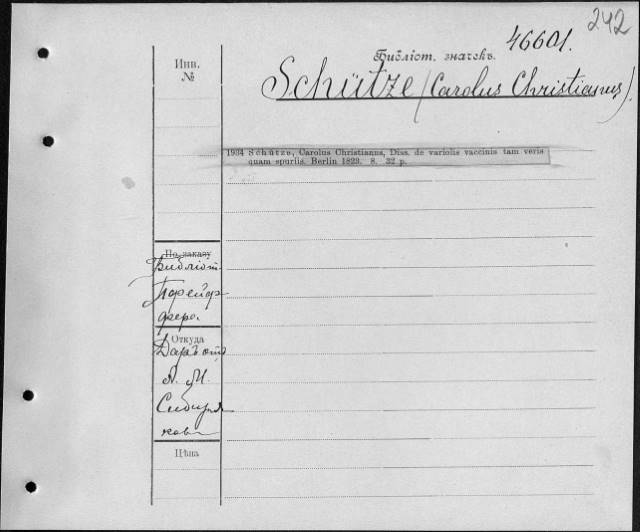 242
46601.
Библіот. значекъ.
Инв.
№
Schütze (Carolus Christianus).
1934 Schütze, Carolus Christianus, Diss. de variolis vaccinis tam veris
quam spuriis. Berlin 1823. 8. 32 p.
По заказу
Библіот.
Пфейф
фера.
Откуда
Даръ отъ
А. М.
Сибиря
кова
Цѣна